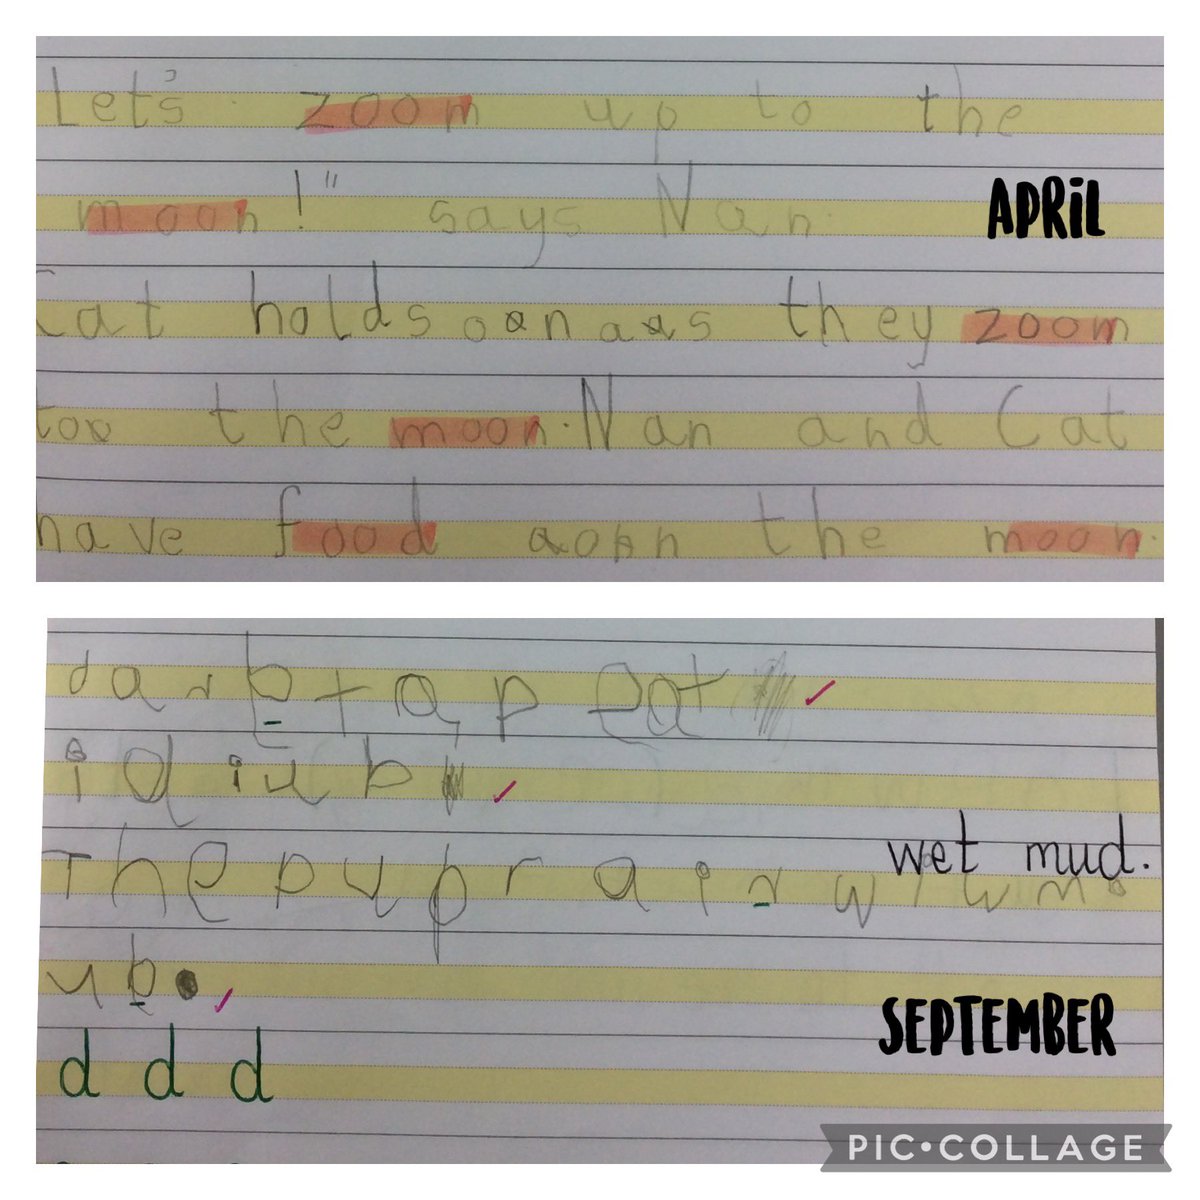 Let's zoom up to the
APRIL
moon!" says Nan.
Cat holds oanaas they zoom
too the moon. Nan and Cat
have food aonn the moon.
t a p eat
i
wet mud.
The pup r a i n w
u b.
SEPTEMBER
d d d
PIC•COLLAGE